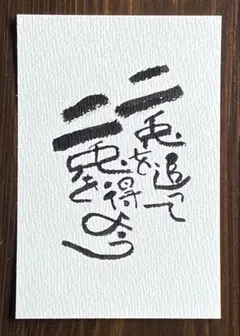 二兎を追って
二兎を得よう